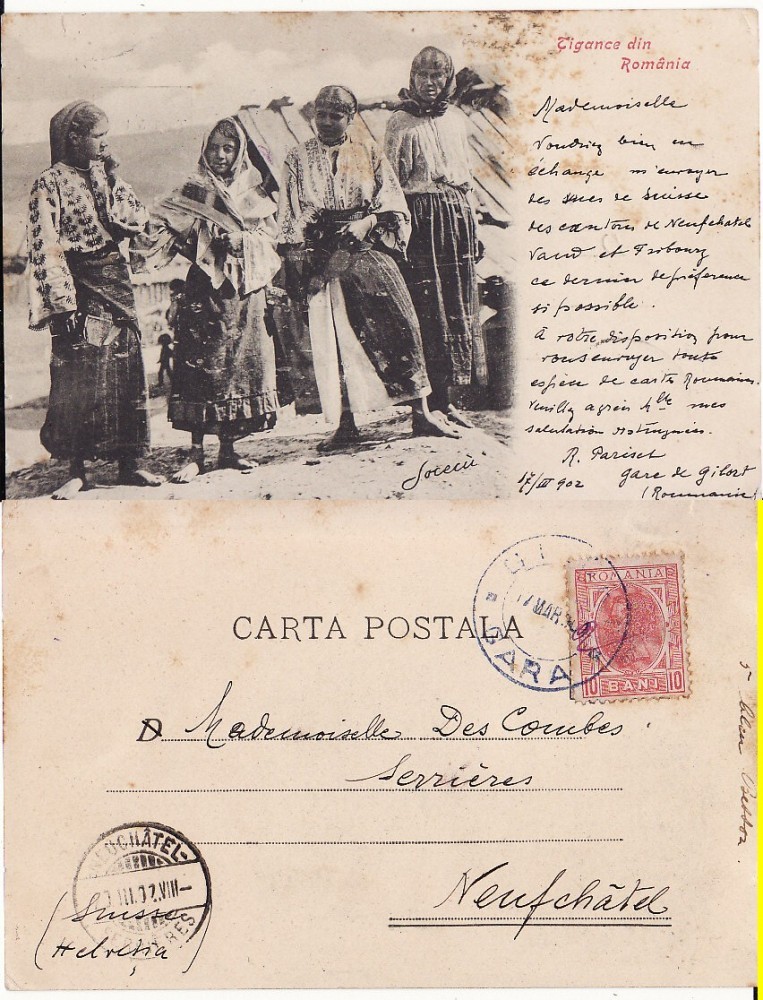 Țigance din
România
Mademoiselle
Voudriez bien en
échange m'envoyer
des vues de Suisse
des cantons de Neufchatel
Vaud et Fribourg
ce dernier de préférence
si possible.
A votre disposition pour
vous envoyer toute
espèce de cartes Roumaines.
Veuillez agréer Mlle mes
salutations distinguées.
R. Pariset
17/III 902 gare de Gilort
(Roumanie)
Socecŭ
CARTA POSTALA
17 MAR
GARA
ROMANIA
10 BANI 10
D Mademoiselle Des Combes
Serrières
Neufchâtel
(Suisse
Helveția)
NEUCHÂTEL-
III.02.VIII-